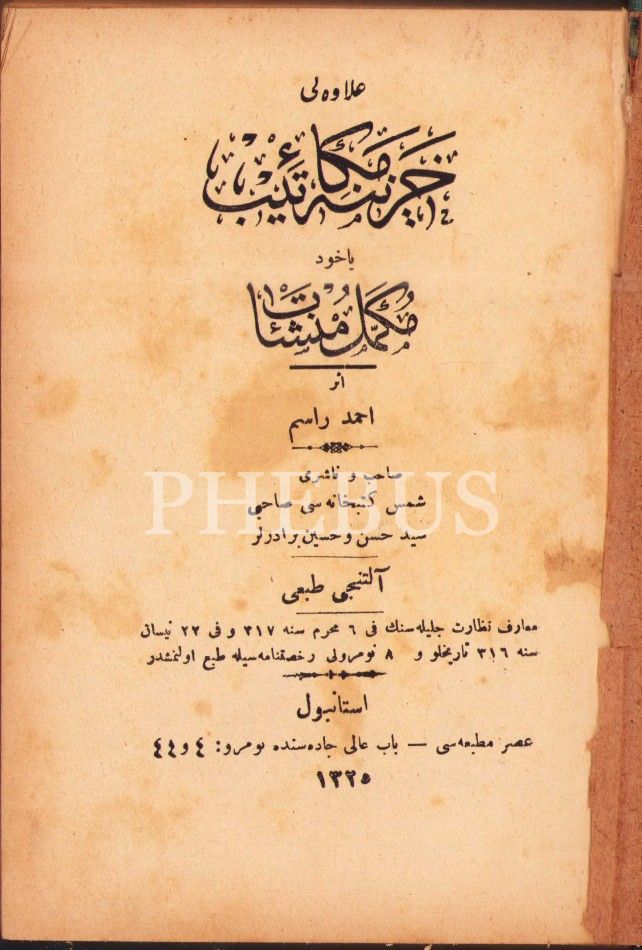 علاوه لی
خزینهٔ مکاتیب
یاخود
مکمل منشئات
اثر
احمد راسم
صاحب و ناشری
شمس کتبخانه سی صاحبی
سید حسن و حسین برادرلر
PHEBUS
آلتنجی طبعی
معارف نظارت جلیله سنك فی ٦ محرم سنه ٣١٧ و فی ٢٢ نیسان
سنه ٣١٦ تاریخلو و ٨ نومرولی رخصتنامه سیله طبع اولنمشدر
استانبول
عصر مطبعه سی — باب عالی جاده سنده نومرو: ٤ و ٤٤
١٣٢٥